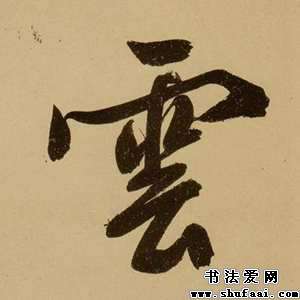 雲
书法爱网
www.shufaai.com